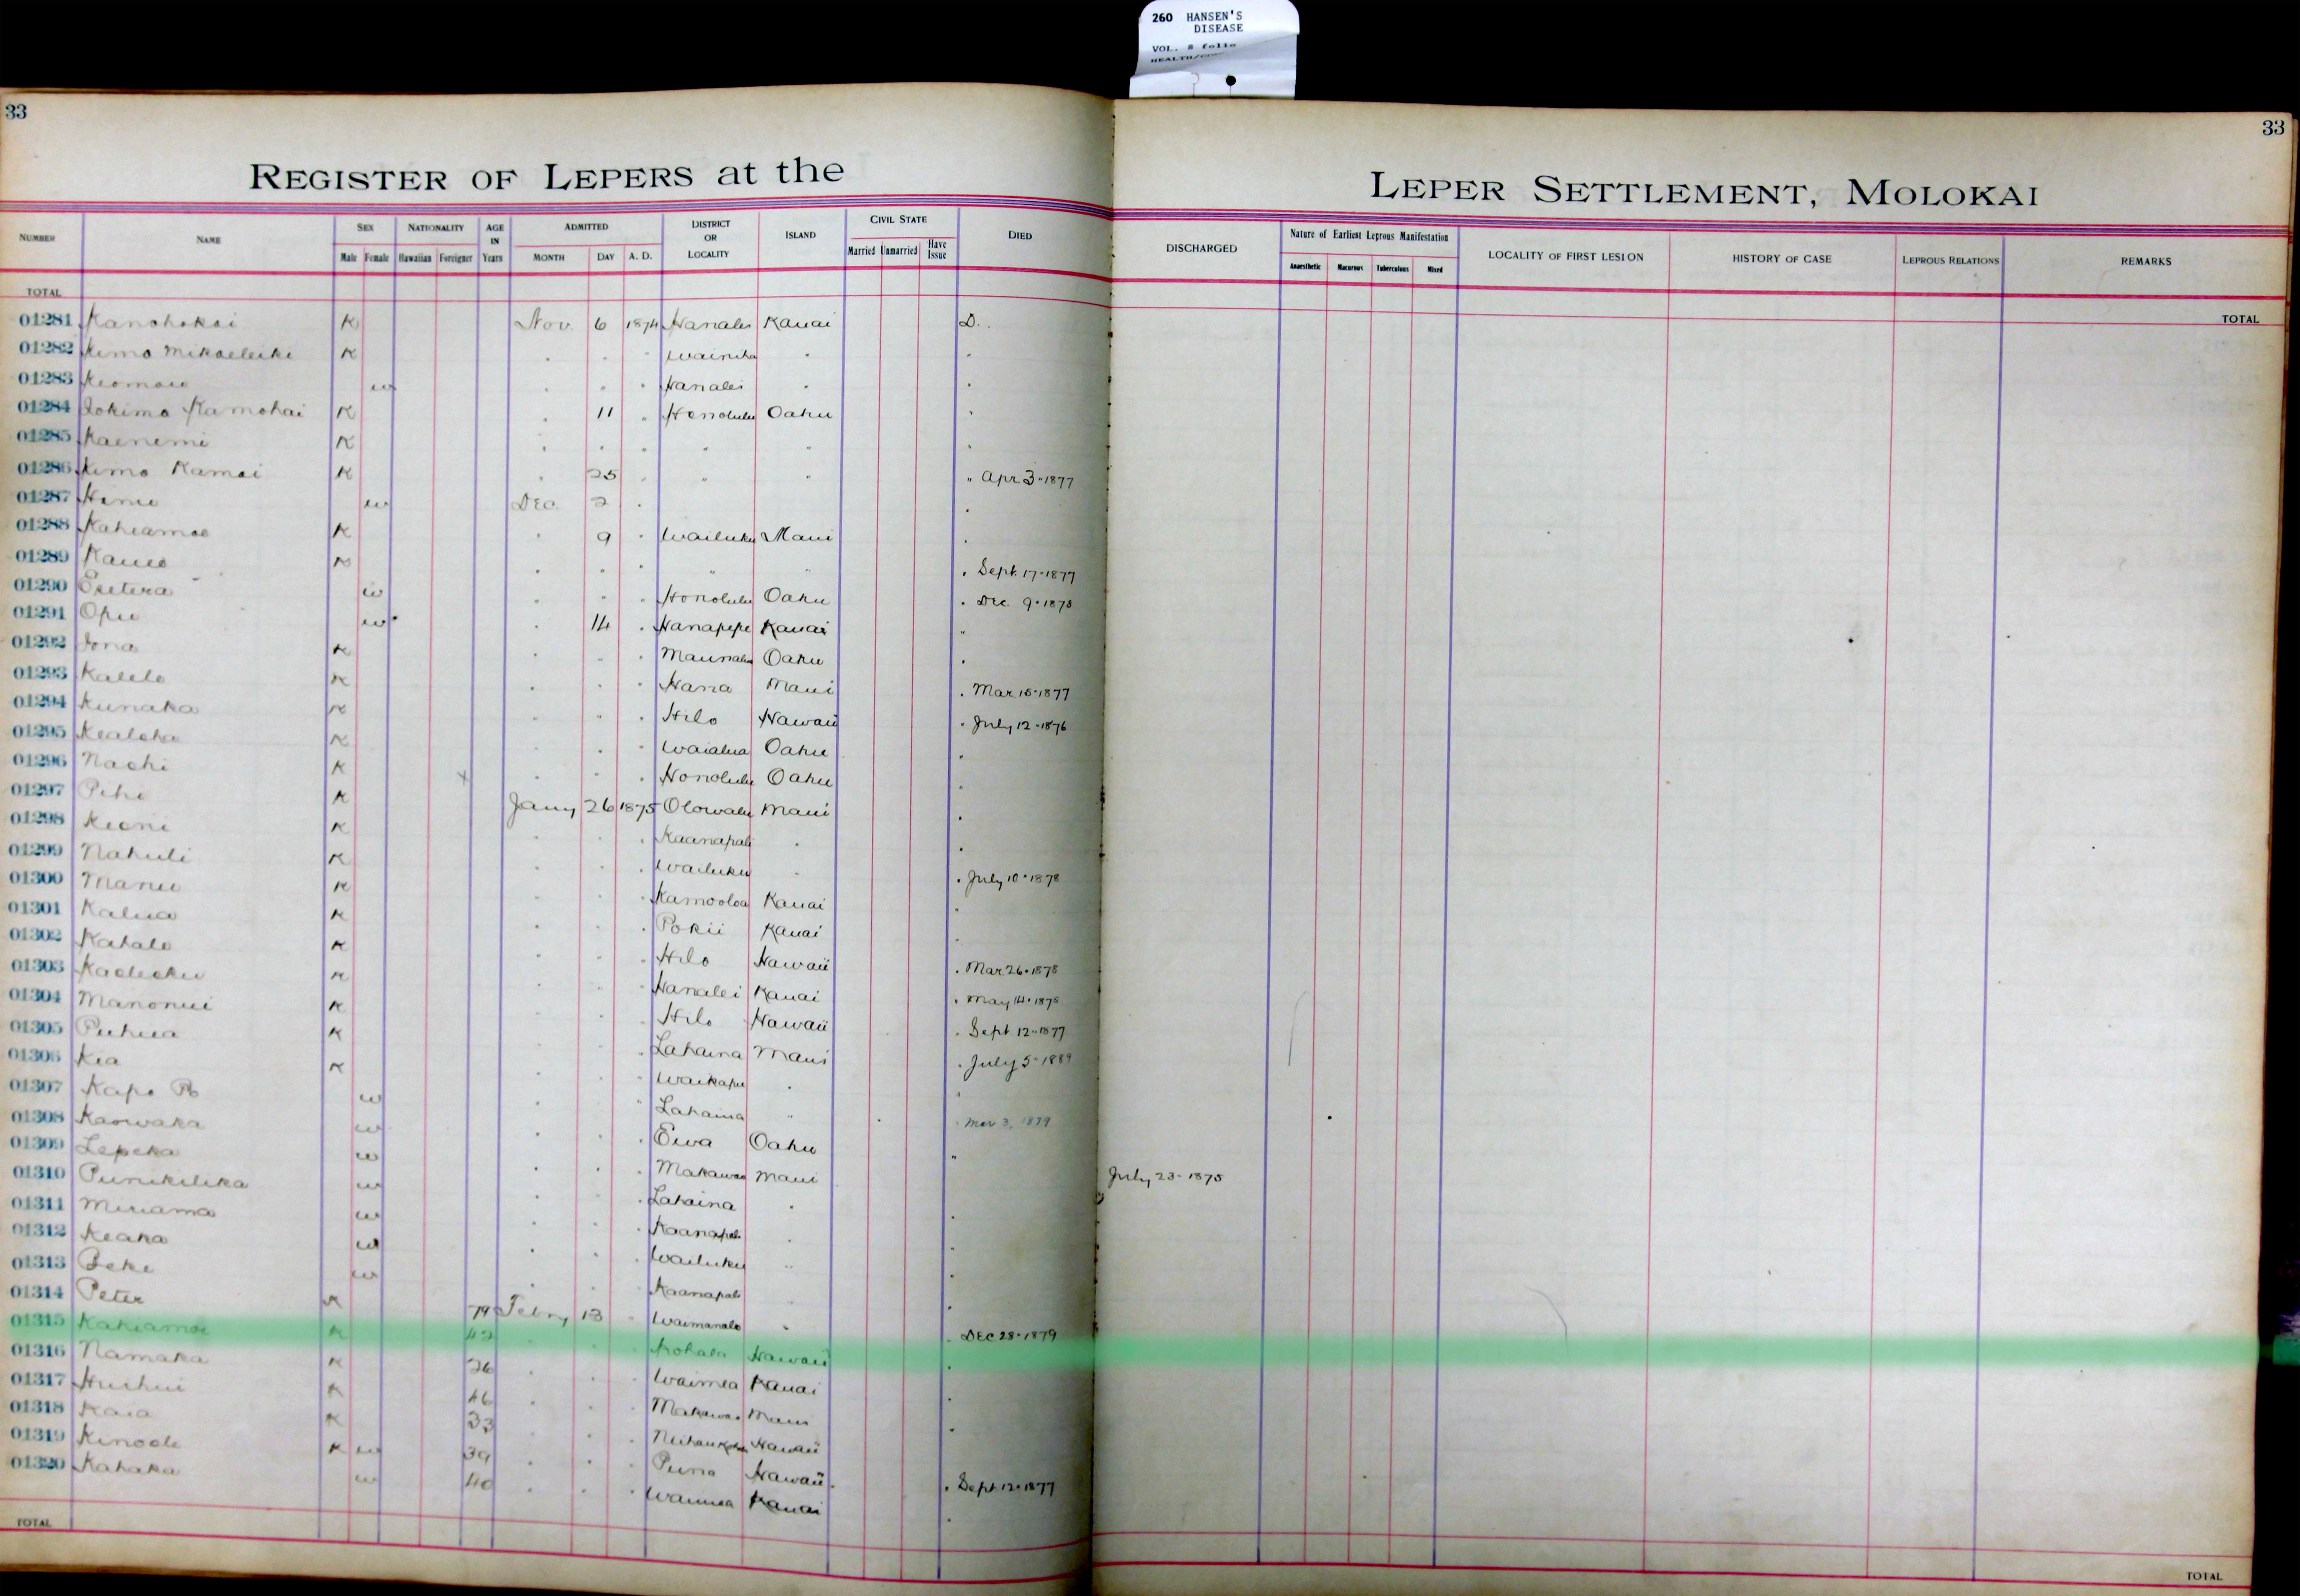 260 HANSEN'S
DISEASE
VOL. 8 folio
33
33
REGISTER OF LEPERS at the LEPER SETTLEMENT, MOLOKAI
NUMBER NAME SEX Male Female NATIONALITY Hawaiian Foreigner AGE IN Years ADMITTED MONTH DAY A. D. DISTRICT OR LOCALITY ISLAND CIVIL STATE Married Unmarried Have Issue DIED DISCHARGED Nature of Earliest Leprous Manifestation Anaesthetic Macurous Tuberculous Mixed LOCALITY OF FIRST LESION HISTORY OF CASE LEPROUS RELATIONS REMARKS
TOTAL TOTAL
01281 Kanohokai K Nov. 6 1874 Hanalei Kauai D.
01282 Kimo Mikaeleiki K " " " Wainiha " "
01283 w " " " Hanalei " "
01284 Iokimo Kamohai K " 11 " Honolulu Oahu "
01285 Kaenemi K " " " " " "
01286 Kimo Kamai K " 25 " " " " Apr 3-1877
01287 w Dec. 2 " "
01288 Kahiamoe K " 9 " Wailuku Maui "
01289 K " " " " " " Sept. 17-1877
01290 w " " " Honolulu Oahu " Dec. 9-1878
01291 Opu w " 14 " Hanapepe Kauai "
01292 Iona K " " " Maunalua Oahu "
01293 Kalele K " " " Hana Maui " Mar 15-1877
01294 Kunaka K " " " Hilo Hawaii " July 12-1876
01295 Kealoha K " " " Waialua Oahu "
01296 Naohi K x " " " Honolulu Oahu "
01297 Pihi K Jany 26 1875 Olowalu Maui "
01298 Keoni K " " " Kaanapali " "
01299 Nahuli K " " " Wailuku " " July 10-1878
01300 Manu K " " " Kamooloa Kauai "
01301 Kalua K " " " Pokii Kauai "
01302 Kahale K " " " Hilo Hawaii " Mar 26-1878
01303 K " " " Hanalei Kauai " May 14-1875
01304 Manonui K " " " Hilo Hawaii " Sept 12-1877
01305 Puhua K " " " Lahaina Maui " July 5-1889
01306 Kia K " " " Waikapu " "
01307 Kapo w " " " Lahaina " " Mar 3, 1879
01308 Kaowaka w " " " Ewa Oahu "
01309 Lepeka w " " " Makawao Maui July 23-1875
01310 Punikilika w " " " Lahaina " "
01311 Miriama w " " " Kaanapali " "
01312 Keaka w " " " Wailuku " "
01313 Peke w " " " Kaanapali " "
01314 Peter K 79 Febry 13 " Waimanalo " " Dec 28-1879
01315 Kakiamoe K 42 " " " Kohala Hawaii "
01316 Namaka K 26 " " " Waimea Kauai "
01317 Huihui K 46 " " " Makawao Maui "
01318 Kaia K 33 " " " Hawaii
01319 Kinoole K w 39 " " " Puna Hawaii " Sept 12-1877
01320 Kahaka w 40 " " " Waimea Kauai "
TOTAL TOTAL